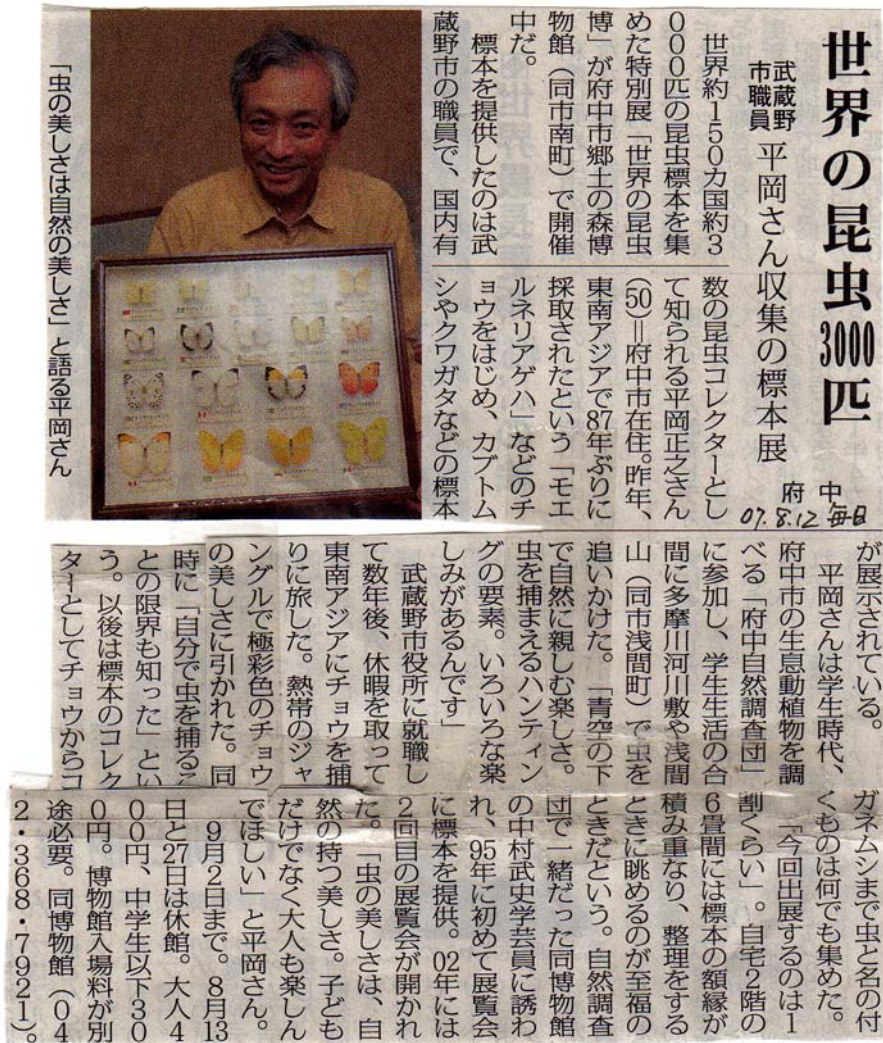 世界の昆虫3000匹
武蔵野
市職員
平岡さん収集の標本展
府中
07.8.12 毎日
世界約150カ国約3
000匹の昆虫標本を集
めた特別展「世界の昆虫
博」が府中市郷土の森博
物館(同市南町)で開催
中だ。
標本を提供したのは武
蔵野市の職員で、国内有
数の昆虫コレクターとし
て知られる平岡正之さん
(50)=府中市在住。昨年、
東南アジアで87年ぶりに
採取されたという「モエ
ルネリアゲハ」などのチ
ョウをはじめ、カブトム
シやクワガタなどの標本
「虫の美しさは自然の美しさ」と語る平岡さん
が展示されている。
平岡さんは学生時代、
府中市の生息動植物を調
べる「府中自然調査団」
に参加し、学生生活の合
間に多摩川河川敷や浅間
山(同市浅間町)で虫を
追いかけた。「青空の下
で自然に親しむ楽しさ。
虫を捕まえるハンティン
グの要素。いろいろな楽
しみがあるんです」
武蔵野市役所に就職し
て数年後、休暇を取って
東南アジアにチョウを捕
りに旅した。熱帯のジャ
ングルで極彩色のチョウ
の美しさに引かれた。同
時に「自分で虫を捕るこ
との限界も知った」とい
う。以後は標本のコレク
ターとしてチョウからコ
ガネムシまで虫と名の付
くものは何でも集めた。
「今回出展するのは1
割ぐらい」。自宅2階の
6畳間には標本の額縁が
積み重なり、整理をする
ときに眺めるのが至福の
ときだという。自然調査
団で一緒だった同博物館
の中村武史学芸員に誘わ
れ、95年に初めて展覧会
に標本を提供。02年には
2回目の展覧会が開かれ
た。「虫の美しさは、自
然の持つ美しさ。子ども
だけでなく大人も楽しん
でほしい」と平岡さん。
9月2日まで。8月13
日と27日は休館。大人4
00円、中学生以下30
0円。博物館入場料が別
途必要。同博物館(04
2・368・7921)。